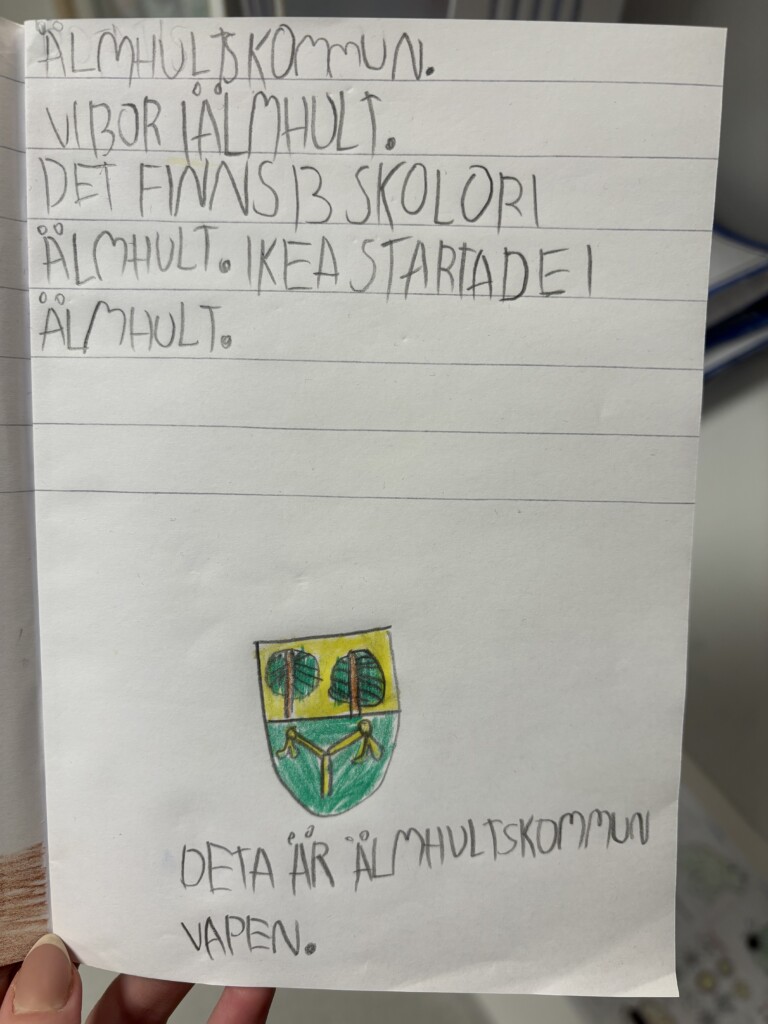 ÄLMHULTSKOMMUN.
VI BOR I ÄLMHULT.
DET FINNS 13 SKOLOR I
ÄLMHULT. IKEA STARTADE I
ÄLMHULT.
DETA ÄR ÄLMHULTSKOMMUN
VAPEN.